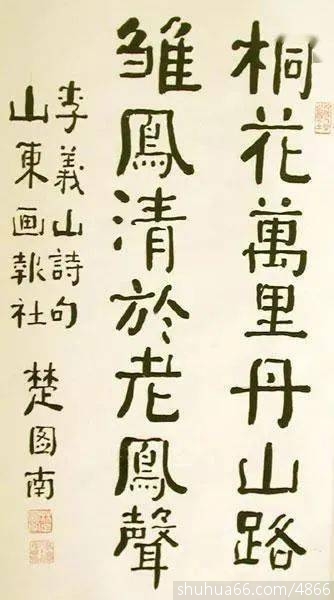 桐花萬里丹山路
雛鳳清於老鳳聲
李義山詩句
山東画報社
楚图南
shuhua66.com/4866